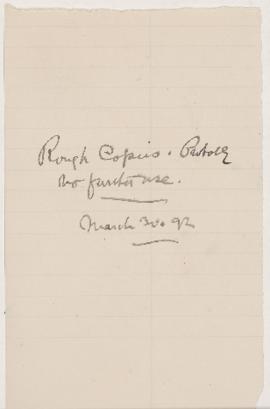 Rough Copies. Probably
no further use.
March 30. 92